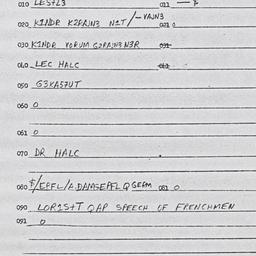 010 LES+L3 011 — P
020 K1NDR K2PAJN3 N1T/-VAJN3 021 0
030 K1NDR VORUM G2PAJN3N3R 031
040 LEC HALC 041
050 G3KA57UT
060 0
061 0
070 DR HALC
080 $/EPFL/ADAMSEPFL Q GERM 081 0
090 LOR1S+T QAP SPEECH OF FRENCHMEN
091 0